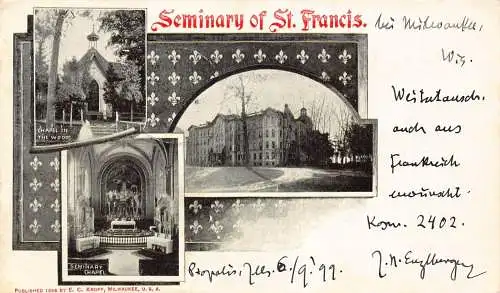 Seminary of St. Francis.
bei Milwaukee,
Wis.
Weitertausch
auch aus
Frankreich
erwünscht.
2402.
6/9. 99.
CHAPEL IN
THE WOOD
SEMINARY
CHAPEL
PUBLISHED 1898 BY E. C. KROPP, MILWAUKEE, U. S. A.